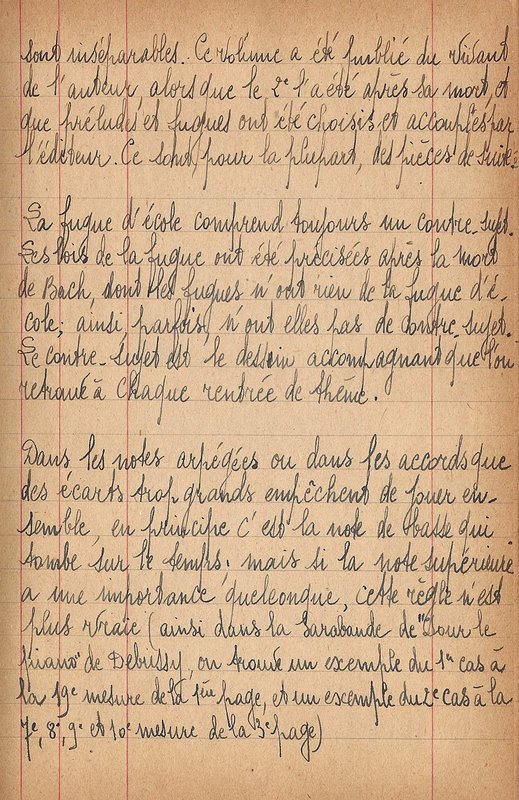 sont inséparables. Ce volume a été publié du vivant
de l'auteur, alors que le 2e l'a été après sa mort, et
que préludes et fugues ont été choisis et accouplés par
l'éditeur. Ce sont, pour la plupart, des pièces de suite.
La fugue d'école comprend toujours un contre-sujet.
Les lois de la fugue ont été précisées après la mort
de Bach, dont les fugues n'ont rien de la fugue d'é-
cole; ainsi parfois, n'ont elles pas de contre-sujet.
Le contre-sujet est le dessin accompagnant que l'on
retrouve à chaque rentrée de thème.
Dans les notes arpégées ou dans les accords que
des écarts trop grands empêchent de jouer en-
semble, en principe c'est la note de basse qui
tombe sur le temps; mais si la note supérieure
a une importance quelconque, cette règle n'est
plus vraie (ainsi dans la Sarabande de "Pour le
piano" de Debussy, on trouve un exemple du 1er cas à
la 19e mesure de la 1ère page, et un exemple du 2e cas à la
7e, 8e, 9e et 10e mesure de la 3e page)